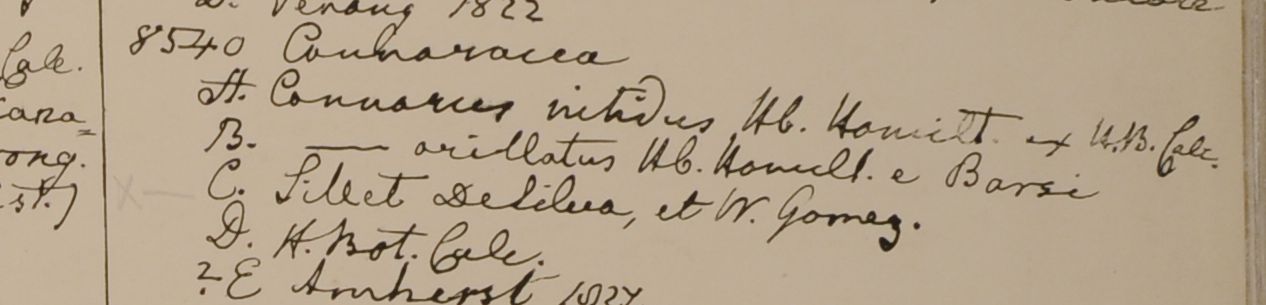 D. Penang 1822
8540 Connaracea
A. Connarus nitidus Hb. Hamilt. ex H.B. Calc.
B. —— arillatus Hb. Hamilt. e Barsi
C. Sillet DeSilva, et W. Gomez.
D. H. Bot. Calc.
? E Amherst 1827
Calc.
ong.
st.)